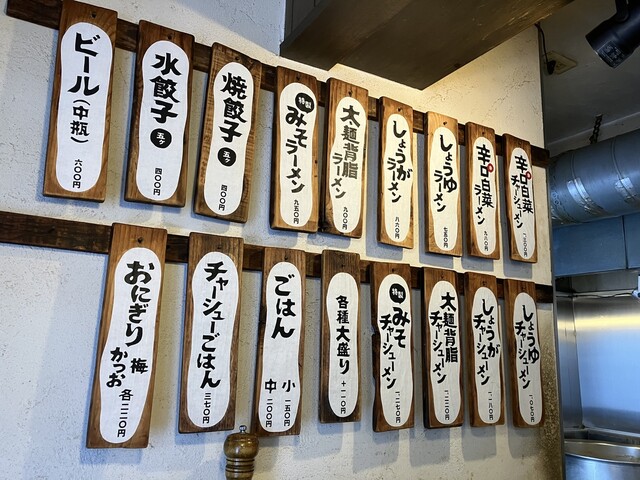 辛口白菜
チャーシューメン
一、三〇〇円
辛口白菜
ラーメン
九八〇円
しょうゆ
ラーメン
七五〇円
しょうが
ラーメン
八六〇円
太麺背脂
ラーメン
九〇〇円
特製
みそ
ラーメン
九五〇円
焼餃子
五ヶ
四〇〇円
水餃子
五ヶ
四〇〇円
ビール(中瓶)
六〇〇円
しょうゆ
チャーシューメン
一、〇七〇円
しょうが
チャーシューメン
一、一八〇円
太麺背脂
チャーシューメン
一、二二〇円
特製
みそ
チャーシューメン
一、二七〇円
各種大盛り
ごはん
小 一五〇円
中 二〇〇円
チャーシューごはん
三七〇円
おにぎり
梅
かつお